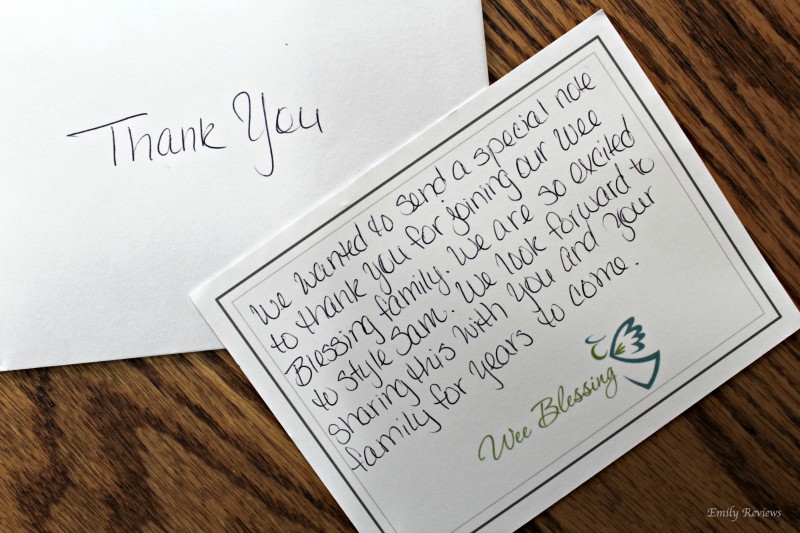 Thank You
We wanted to send a special note
to thank you for joining our Wee
Blessing family. We are so excited
to style Sam. We look forward to
sharing this with you and your
family for years to come.
Wee Blessing
Emily Reviews